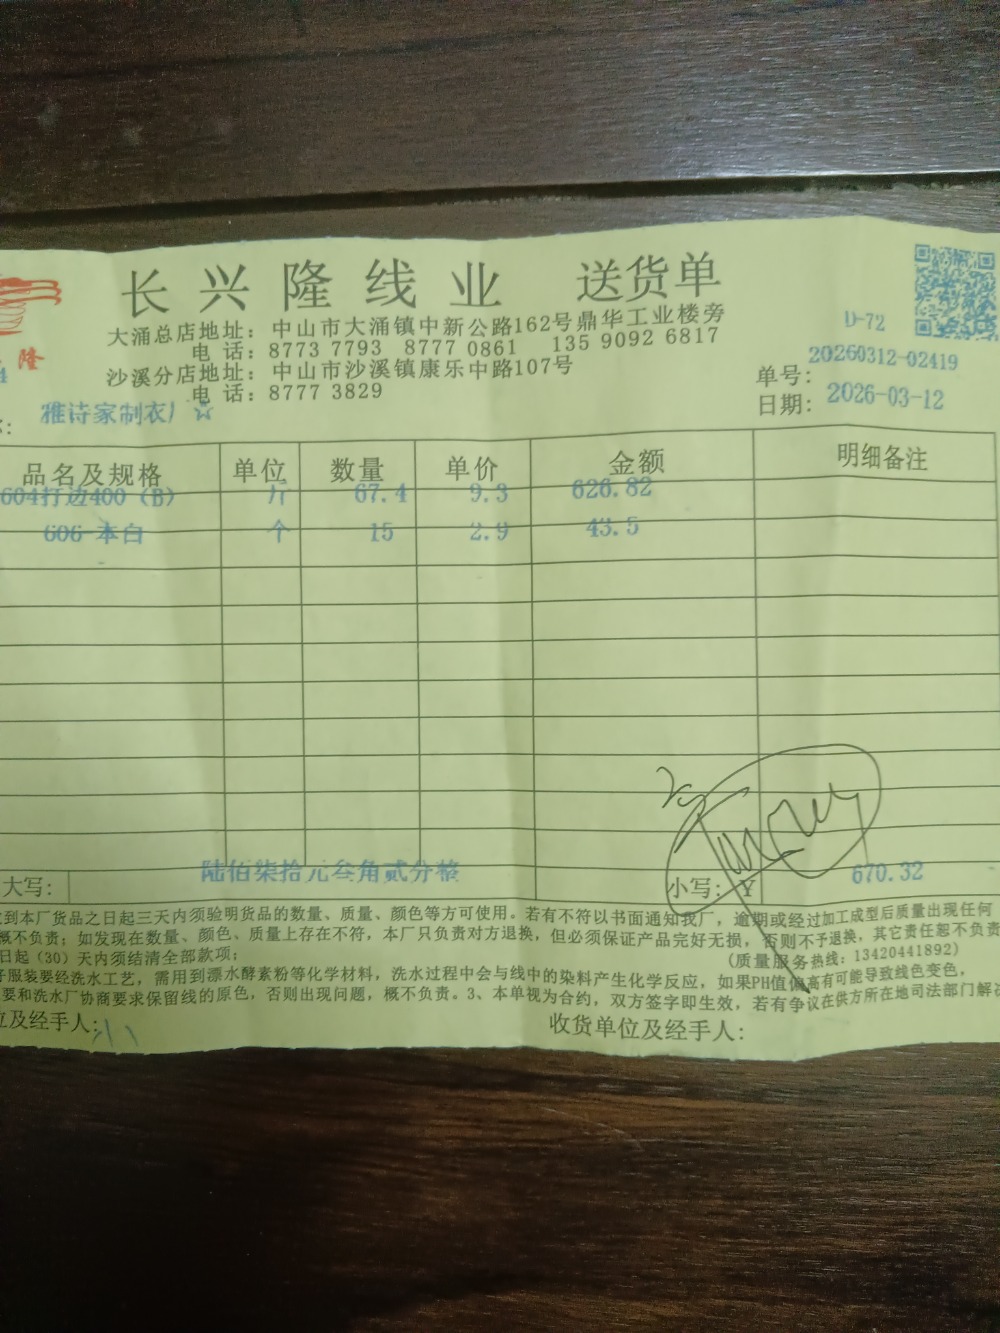 长兴隆线业 送货单
大涌总店地址：中山市大涌镇中新公路162号鼎华工业楼旁
电 话：8773 7793 8777 0861 135 9092 6817
沙溪分店地址：中山市沙溪镇康乐中路107号
电 话：8777 3829
隆
4
D-72
单号：20260312-02419
日期：2026-03-12
雅诗家制衣厂☆
品名及规格 单位 数量 单价 金额 明细备注
604打边400（B） 斤 67.4 9.3 626.82
606-本白 个 15 2.9 43.5
大写： 陆佰柒拾元叁角贰分整 小写：￥ 670.32
到本厂货品之日起三天内须验明货品的数量、质量、颜色等方可使用。若有不符以书面通知我厂，逾期或经过加工成型后质量出现任何
概不负责；如发现在数量、颜色、质量上存在不符，本厂只负责对方退换，但必须保证产品完好无损，否则不予退换，其它责任恕不负责
日起（30）天内须结清全部款项；
(质量服务热线：13420441892)
服装要经洗水工艺，需用到漂水酵素粉等化学材料，洗水过程中会与线中的染料产生化学反应，如果PH值偏高有可能导致线色变色，
要和洗水厂协商要求保留线的原色，否则出现问题，概不负责。3、本单视为合约，双方签字即生效，若有争议在供方所在地司法部门解决
位及经手人：
收货单位及经手人：